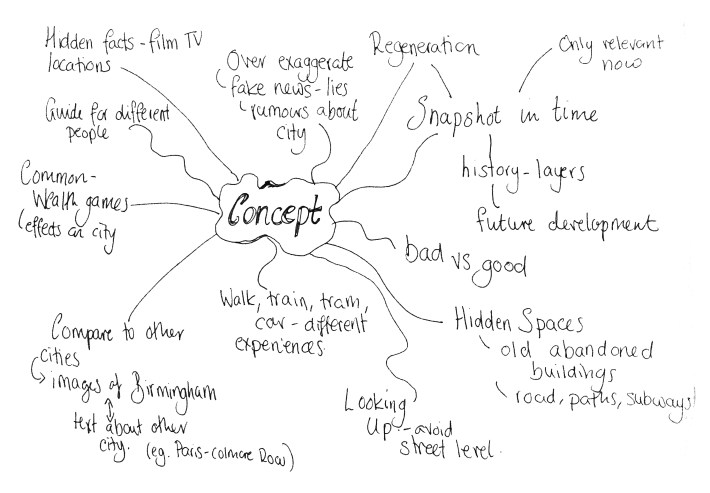 Hidden facts - film TV
locations
Over exaggerate
fake news - lies
rumours about
city
Regeneration
Only relevant
now
Snapshot in time
history - layers
future development
Guide for different
people
Common -
wealth games
effects on city
Concept
bad vs good
Walk, train, tram,
car - different
experiences.
Hidden Spaces
old abandoned
buildings
road, paths, subways
Compare to other
cities
images of Birmingham
text about other
city. (eg. Paris - Colmore Row)
Looking
up - avoid
street level.